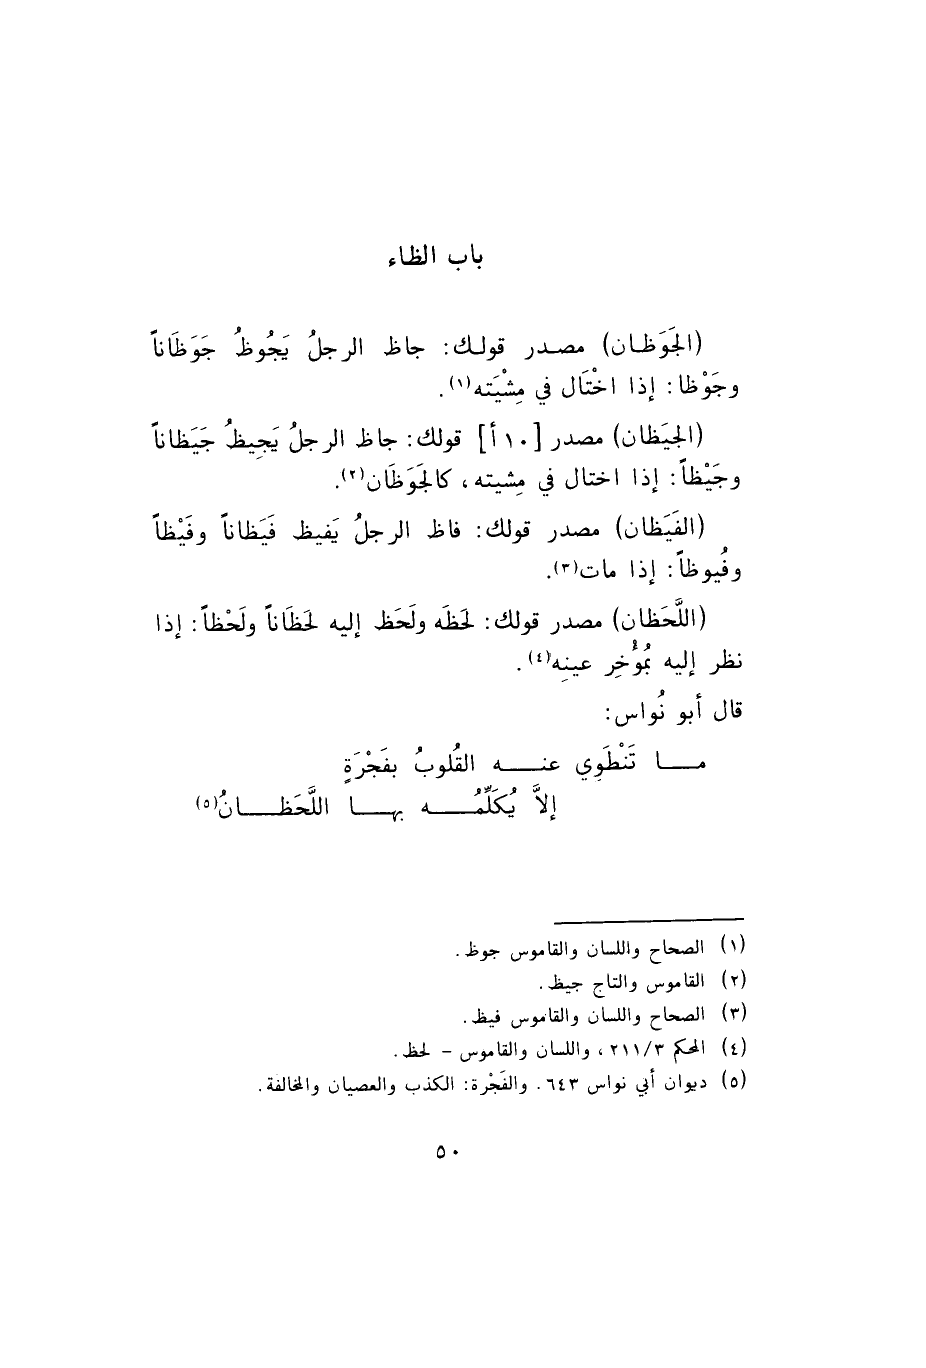 باب الظاء
(الجَوَظان) مصدر قولك: جاظ الرجلُ يَجُوظُ جَوَظَاناً
وجَوْظا: إذا اخْتَال في مِشْيَته(١).
(الجيَظان) مصدر [١٠ أ] قولك: جاظ الرجلُ يَجِيظُ جَيَظاناً
وجَيْظاً: إذا اختال في مِشيته، كالجَوَظَان(٢).
(الفَيَظان) مصدر قولك: فاظ الرجلُ يَفيظ فَيَظاناً وفَيْظاً
وفُيوظاً: إذا مات(٣).
(اللَّحَظان) مصدر قولك: لحَظَه ولَحَظ إليه لحَظَاناً ولَحْظاً: إذا
نظر إليه بمُؤْخِر عينِه(٤).
قال أبو نُواس:
مـا تَنْطَوِي عنـه القُلوبُ بفَجْرَةٍ
إلاَّ يُكَلِّمُـه بهـا اللَّحَظـانُ(٥)
(١) الصحاح واللسان والقاموس جوظ.
(٢) القاموس والتاج جيظ.
(٣) الصحاح واللسان والقاموس فيظ.
(٤) المحكم ٢١١/٣، واللسان والقاموس – لحظ.
(٥) ديوان أبي نواس ٦٤٣. والفَجْرة: الكذب والعصيان والمخالفة.
٥٠